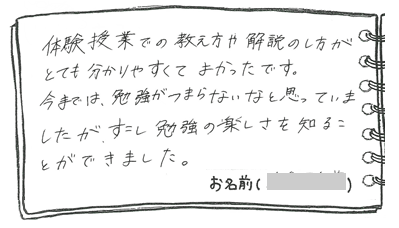 体験授業での教え方や解説のし方が
とても分かりやすくてよかったです。
今までは、勉強がつまらないなと思っていま
したが、すこし勉強の楽しさを知るこ
とができました。
お名前( )